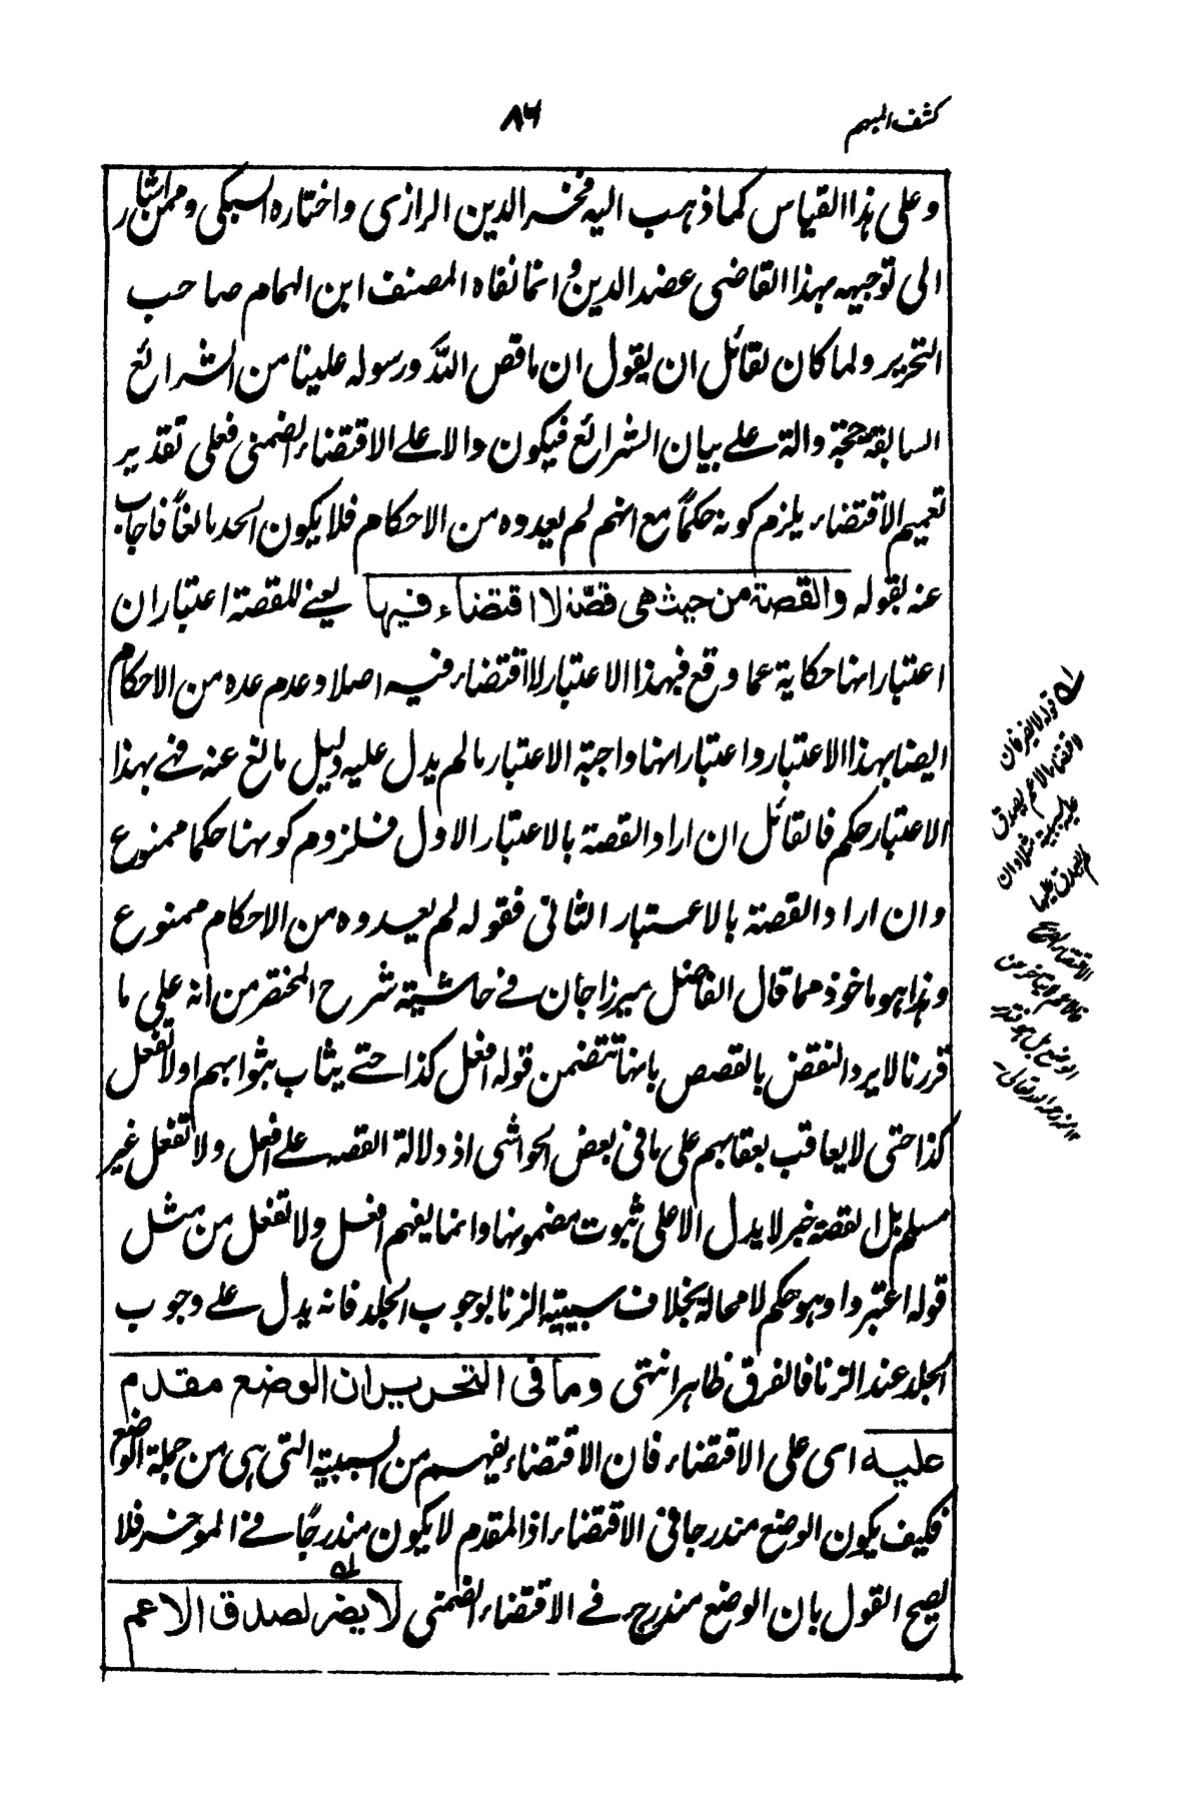 كشف المبهم
٨٦
وعلى هذا القياس كما ذهب اليه فخر الدين الرازى واختاره السبكى وممن اشار
الى توجيهه بهذا القاضى عضد الدين وانما نفاه المصنف ابن الهمام صاحب
التحرير ولما كان لقائل ان يقول ان ما قص الله ورسوله علينا من الشرائع
السابقة حجة دالة على بيان الشرائع فيكون دالا على الاقتضاء الضمنى فعلى تقدير
تعميم الاقتضاء يلزم كونه حكماً مع انهم لم يعدوه من الاحكام فلا يكون الحد مانعاً فاجاب
عنه بقوله والقصة من حيث هى قصة لا اقتضاء فيها يعنے للقصة اعتباران
اعتبار انها حكاية عما وقع فبهذا الاعتبار لا اقتضاء فيه اصلا وعدم عده من الاحكام
ايضا بهذا الاعتبار واعتبار انها واجبة الاعتبار ما لم يدل عليه دليل مانع عنه فهے بهذا
الاعتبار حكم فالقائل ان اراد القصة بالاعتبار الاول فلزوم كونها حكما ممنوع
وان اراد القصة بالاعتبار الثانى فقوله لم يعدوه من الاحكام ممنوع
وهذا هو ماخوذ مما قال الفاضل ميرزاجان فے حاشية شرح المختصر من انه على ما
قررنا لا يرد النقض بالقصص بانها تتضمن قوله افعل كذا حتے يثاب بثوابهم اولا تفعل
كذا حتى لا يعاقب بعقابهم على ما فى بعض الحواشى اذ دلالة القصه علے افعل ولا تفعل غير
مسلم بل القصة خبر لا يدل الا على ثبوت مضمونها وانما يفهم افعل ولا تفعل من مثل
قوله اعتبروا وهو حكم لا محالة بخلاف سببية الزنا لوجوب الجلد فانه يدل علے وجوب
الجلد عند الزنا فالفرق ظاهر انتهى وما فى التحرير ان الوضع مقدم
عليه اى على الاقتضاء فان الاقتضاء يفهم من السببية التى هى من جملة الوضع
فكيف يكون الوضع مندرجا فى الاقتضاء اذ المقدم لا يكون مندرجاً فے الموخر فلا
يصح القول بان الوضع مندرج فے الاقتضاء الضمنى لا يضر لصدق الاعم
قوله لا يضر فان
الاقتضاء الاعم يصدق